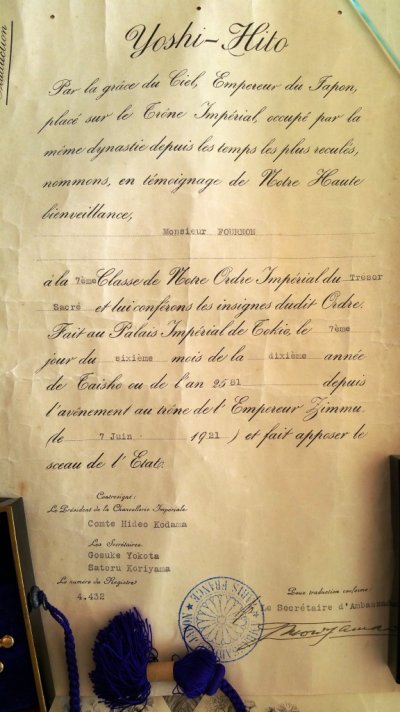 Traduction
Yoshi-Hito
Par la grâce du Ciel, Empereur du Japon,
placé sur le Trône Impérial, occupé par la
même dynastie depuis les temps les plus reculés,
nommons, en témoignage de Notre Haute
bienveillance,
Monsieur FOURNON
à la 7ème Classe de Notre Ordre Impérial du Trésor
Sacré et lui conférons les insignes dudit Ordre.
Fait au Palais Impérial de Tokio, le 7ème
jour du sixième mois de la dixième année
de Taisho ou de l'an 2581 depuis
l'avènement au trône de l'Empereur Zimmu.
(le 7 Juin 1921) et fait apposer le
sceau de l'Etat.
Contresigné:
Le Président de la Chancellerie Impériale
Comte Hideo Kodama
Les Secrétaires.
Gosuke Yokota
Satoru Koriyama
Le numéro du Registre
4.432
PARIS FRANCE
Pour traduction conforme:
Le Secrétaire d'Ambassade